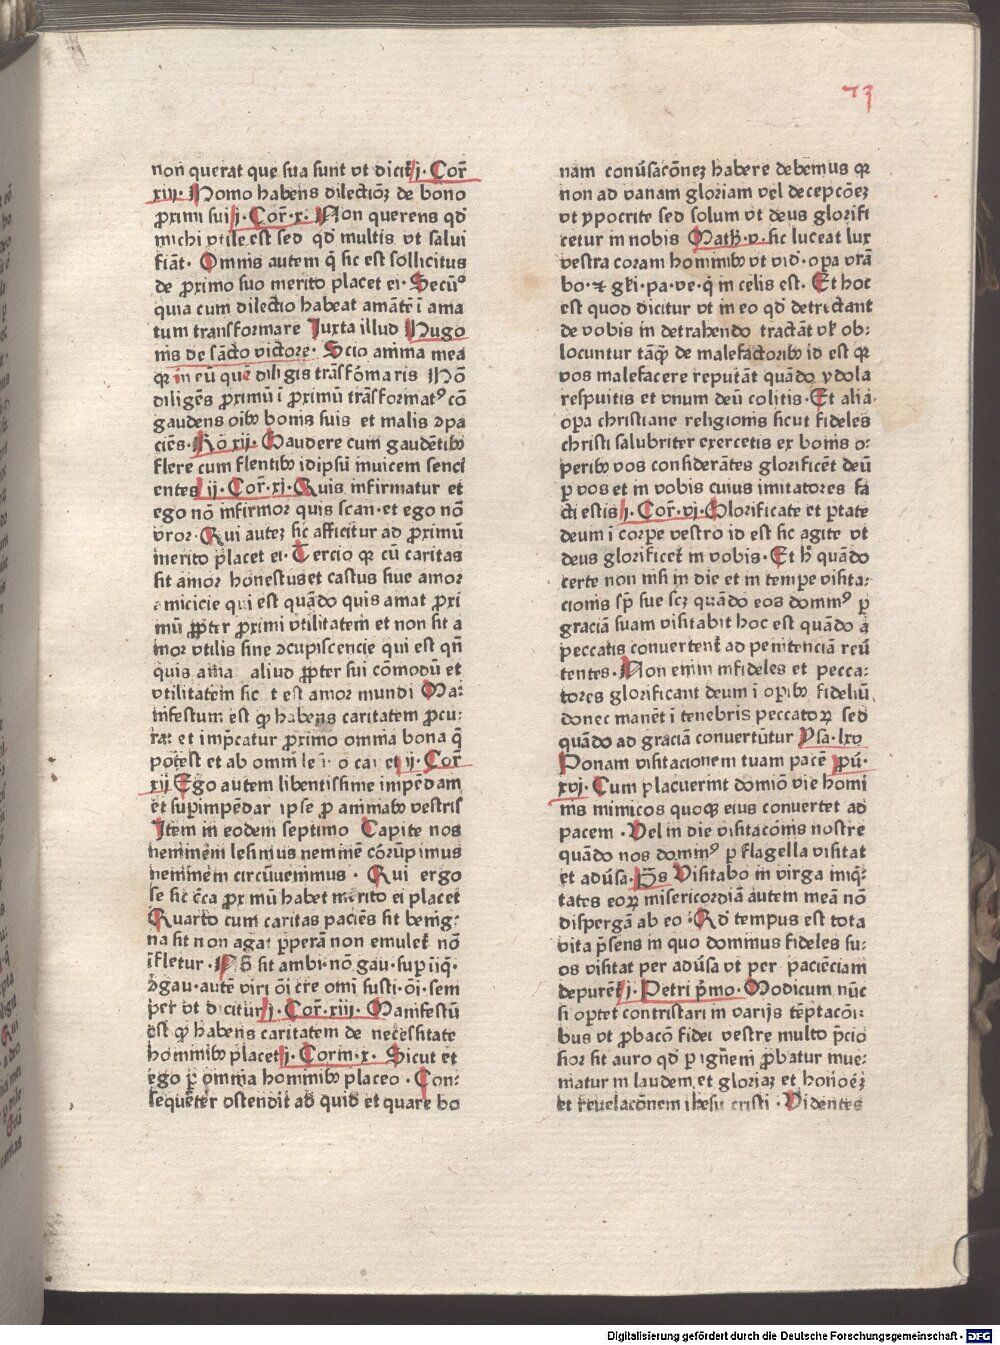 73
non querat que sua sunt vt dicit̄ j· Cor̄
xiij· Homo habens dilectiōꝫ de bono
ꝓximi sui j· Cor̄·x· Non querens qd̄
michi vtile est sed qd̄ multis vt salui
fiāt· Omnis autem q̄ sic est sollicitus
de ꝓximo suo merito placet ei· Secūᵒ
quia cum dilectio habeat amātē ī ama
tum transformare Juxta illud Hugo
nis de sācto victore· Scio anima mea
qꝛ in eū quē diligis trāsfōmaris Nō
diligēs ꝓximū ī ꝓximū trāsformatꝰ cō
gaudens oībꝰ bonis suis et malis ꝯpa
ciēs· Rō xij· Gaudere cum gaudētibꝰ
flere cum flentibꝰ idipsū inuicem senci
entes ij· Cor̄·xj· Quis infirmatur et
ego nō infirmor quis scan· et ego nō
vror· Qui auteꝫ sic afficitur ad ꝓximū
merito placet ei· Tercio qꝛ cū caritas
sit amor honestus et castus siue amor
amicicie qui est quādo quis amat ꝓxi
mū ꝓpter ꝓximi vtilitatem et non sit a
mor vtilis siue ꝯcupiscencie qui est qn̄
quis ama aliud ꝓpter sui cōmodū et
vtilitatem sic t est amor mundi Ma⸗
nifestum est ꝙ habens caritatem ꝓcu⸗
rat et imp̄catur ꝓximo omnia bona q̄
potest et ab omni ij· Cor̄
xij Ego autem libentissime impēdam
et suꝑimpēdar ipse ꝓ animabꝰ vestris
Item in eodem septimo Capite nos
neminem lesimus neminē cōrūpimus
neminem circūuenimus · Qui ergo
se sic c̄ca ꝓxīmū habet merito ei placet
Quarto cum caritas paciēs sit benig⸗
na sit non agat ꝑperā non emulet̄ nō
īfletur · Nō sit ambi· nō gau· suꝑ iīq̄·
ꝯgau· autē viri oī cre omī susti· oī· sem
per vt dicitur j· Cor̄·xiij· Manifestū
est ꝙ habens caritatem de necessitate
hominibꝰ placet j· Corin·x· Sicut et
ego ꝑ omnia hominibꝰ placeo · Con⸗
sequēter ostendit ad quid et quare bo
nam conūsacōneꝫ habere debemus qꝛ
non ad vanam gloriam vel decepcōeꝫ
vt ypocrite sed solum vt deus glorifi
cetur in nobis Math̄·v· sic luceat lux
vestra coram hominibꝰ vt vid· oꝑa vrā
bo· ⁊ gl̄i· pa· ve· q̄ in celis est· Et hoc
est quod dicitur vt in eo qd̄ detrectant
de vobis in detrahendo tractāt vl̄ ob⸗
locuntur tāqꝫ de malefactoribꝰ id est qꝛ
vos malefacere reputāt quādo ydola
respuitis et vnum deū colitis· Et alia
oꝑa christiane religionis sicut fideles
christi salubriter exercetis ex bonis o⸗
peribꝰ vos considerātes glorificēt deū
ꝑ vos et in vobis cuius imitatores fa
cti estis j· Cor̄·vj· Glorificate et ꝑtate
deum ī corpe vestro id est sic agite vt
deus glorificet̄ in vobis· Et h̄ quādo
certe non nisi in die et in tempe visita⸗
cionis sp̄ sue scꝫ quādo eos dominꝰ ꝑ
graciā suam visitabit hoc est quādo a
peccatis conuertent̄ ad penitenciā reū
tentes· Non enim infideles et pecca⸗
tores glorificant deum ī oꝑibꝰ fideliū
donec manēt ī tenebris peccatoꝝ sed
quādo ad graciā conuertūtur Psa· lxv
Ponam visitacionem tuam pacē ꝓu·
xvj· Cum placuerint domiō vie homi
nis inimicos quoqꝫ eius conuertet ad
pacem · Vel in die visitacōnis nostre
quādo nos dominꝰ ꝑ flagella visitat
et adūsa· Ps̄ Visitabo in virga iniq̄⸗
tates eoꝝ misericordiā autem meā nō
dispergā ab eo· Qd̄ tempus est tota
vita p̄sens in quo dominus fideles su⸗
os visitat per adūsa vt per paciēciam
depurēt̄ j· Petri p̄mo· Modicum nūc
si oꝑtet contristari in varijs tēptacōi⸗
bus vt ꝓbacō fidei vestre multo p̄cio
sior sit auro qd̄ ꝑ ignem ꝓbatur inue⸗
niatur in laudem et gloriaꝫ et honoēꝫ
et reuelacōnem ihesu cristi · Videntes
Digitalisierung gefördert durch die Deutsche Forschungsgemeinschaft - DFG